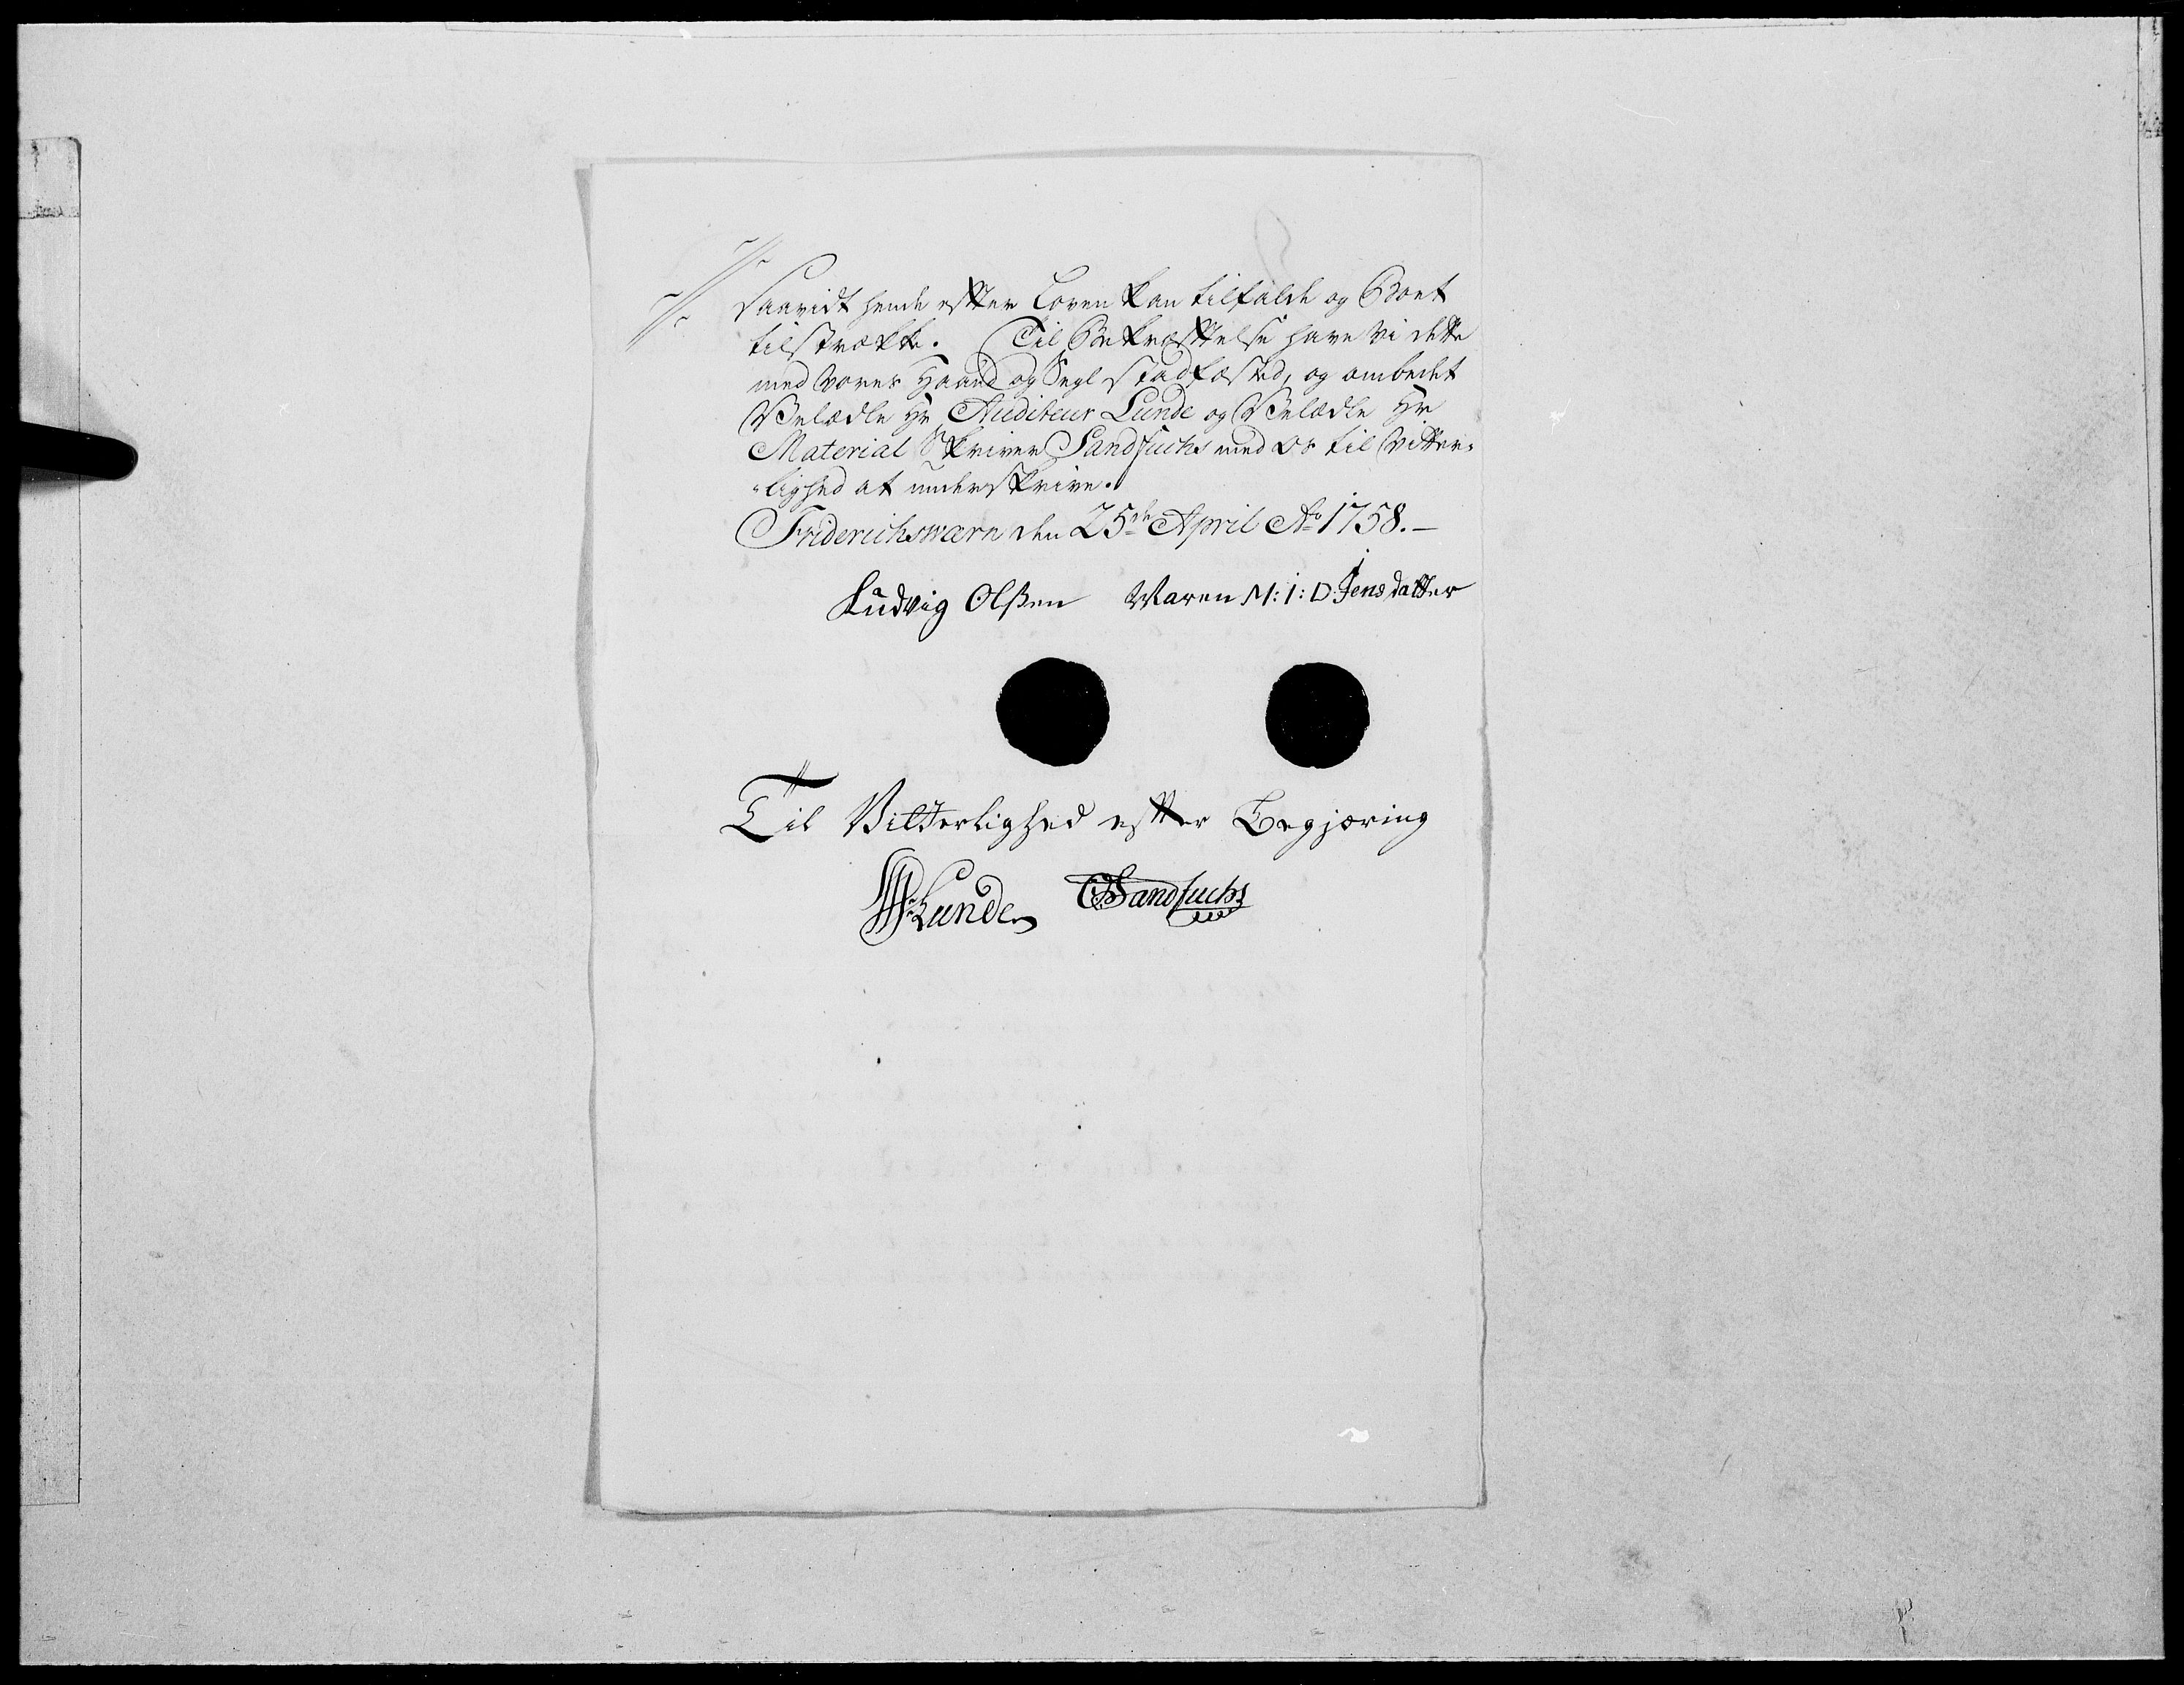 saavidt hende efter Loven kan tilfalde og Boet
tilstrække. Til Bekræftelse have Vi dette
med vores Haand og Segl stadfæsted, og ombedet
Velædle Hr Auditeur Lunde og Velædle Hr
Material Skriver Sandfuchs med os til Vitter-
-lighed at underskrive.
Friderichswærn den 25de April Ao 1758.-
Ludvig Olßen Maren M: I: D: Jensdatter
Til Vitterlighed efter Begjæring
Lunde Sandfuchs